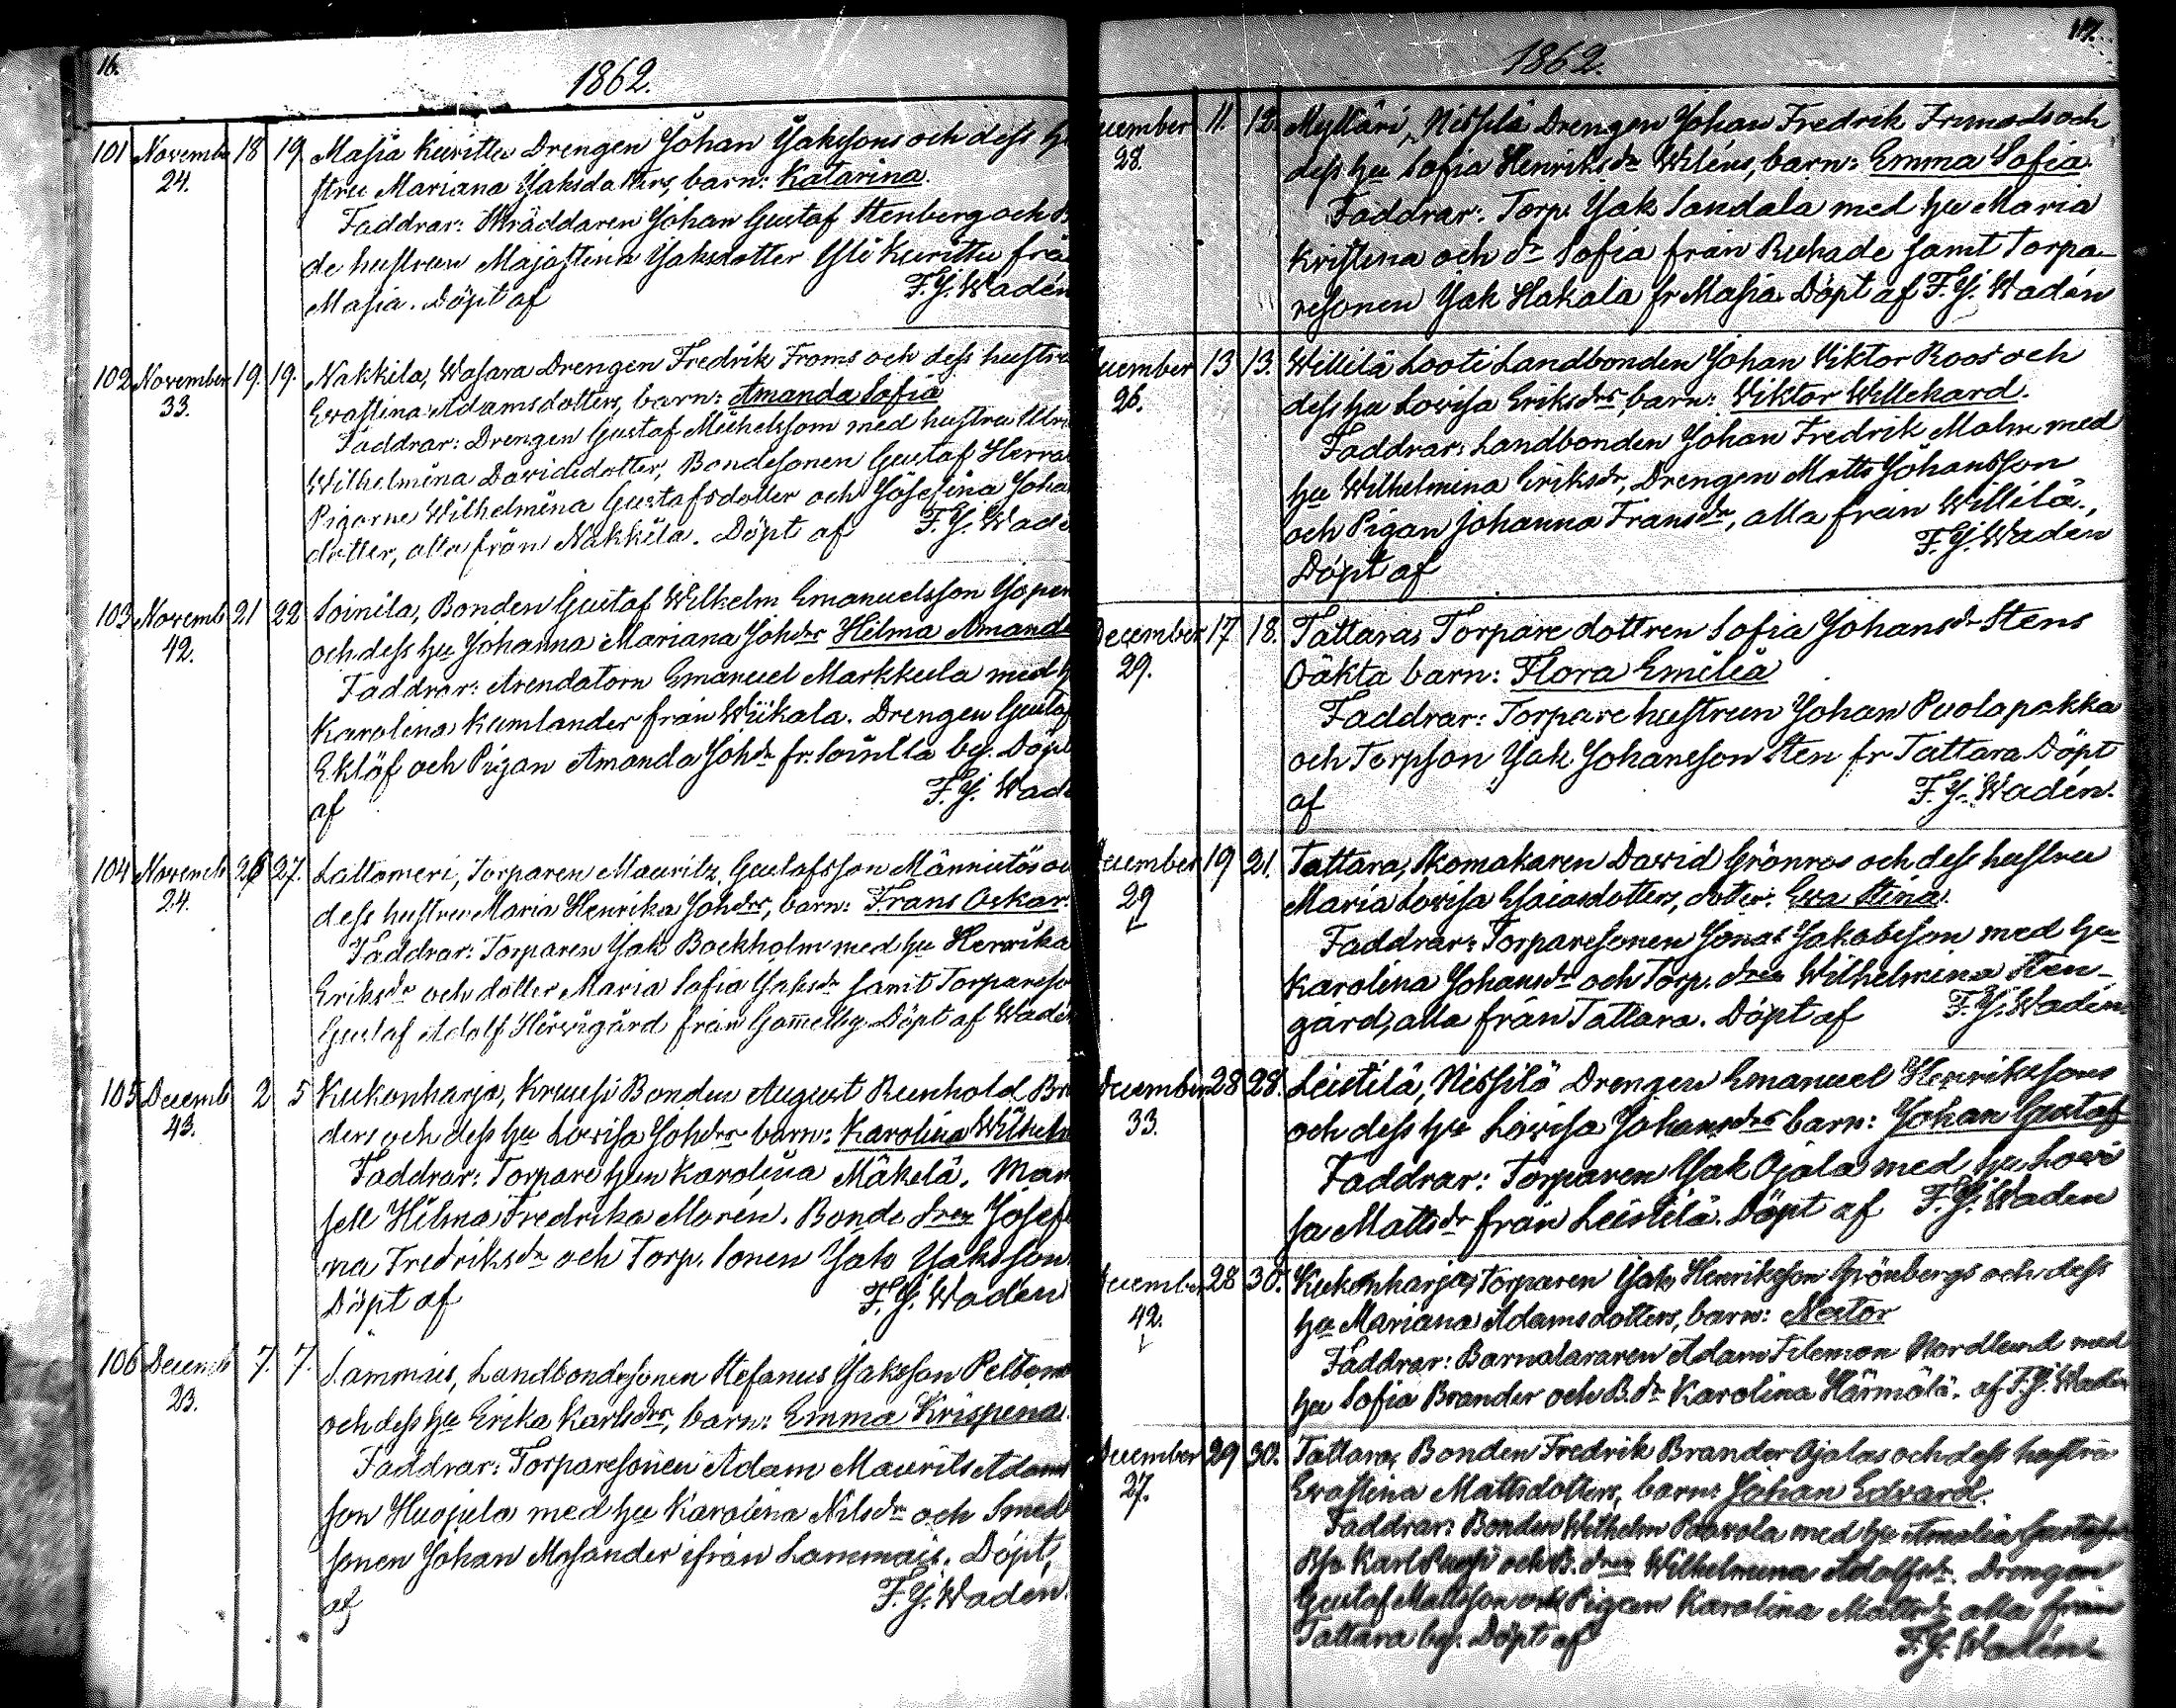 16.
1862.
101 November 18 19 Masia Kuritta Drengen Johan Jakssons och dess hu
24. stru Mariana Jaksdotters, barn: Katarina.
Faddrar: Skräddaren Johan Gustaf Stenberg och
de hustrun Majastina Jaksdotter Yli Kurittu frå
Masia. Döpt af F. J. Wadén
102 November 19. 19. Nakkila, Wasara Drengen Fredrik Froms och dess hustru
33. Evastina Adamsdotters, barn: Amanda Sofia
Faddrar: Drengen Gustaf Michelsson med hustru Ulri
Wilhelmina Davidsdotter, Bondesonen Gustaf Herra
Pigorne Wilhelmina Gustafsdotter och Josefina Joha
dotter, alla från Nakkila. Döpt af F. J. Wadé
103 Novemb 21 22 Soinila, Bonden Gustaf Wilhelm Emanuelsson
42. och dess hu Johanna Mariana Johdrs Hilma Amand
Faddrar: Arendatorn Emanuel Markkula med h
Karolina Kumlander från Wiikala. Drengen Gustaf
Eklöf och Pigan Amanda Johdr fr. Soinila by. Döpt
af F. J. Wadé
104 Novemb 26 27. Lattomeri, Torparen Mauritz Gustafsson Männistös oc
24. dess hustru Maria Henrika Johdrs, barn: Frans Oskar.
Faddrar: Torparen Jak Bockholm med hu Henrika
Eriksdr och dotter Maria Sofia Jaksdr samt Torpareso
Gustaf Adolf Hervigård från Gamelby. Döpt af Wadén
105 Decemb 2 5 Kukonharja, Kruusi Bonden August Reinhold Bra
43. ders och dess hu Lovisa Johdrs barn: Karolina Wilhelm
Faddrar: Torpare hun Karolina Mäkelä. Mam
sell Hilma Fredrika Morén. Bonde dren Josefi
na Fredriksdr och Torp. sonen Jak Jaksson
Döpt af F. J. Wadén
106 Decemb 7. 7. Lammais, Landbondesonen Stefanus Jaksson Peltom
23. och dess hu Erika Karlsdrs, barn: Emma Krispina.
Faddrar: Torparesonen Adam Maurits Adams
son Huojula med hu Karolina Nilsdr och Smed
sonen Johan Mosander ifrån Lammais. Döpt
af F. J. Wadén.
17.
1862.
ecember 11. 12. Mylläri, Nissilä Drengen Johan Fredrik och
28. dess hu Sofia Henriksdr Wiléns, barn: Emma Sofia.
Faddrar: Torp. Jak Sandala med hu Maria
Kristina och dr Sofia från Ruhade samt Torpa-
resonen Jak Hakala fr Masia. Döpt af F. J. Wadén
ecember 13 13. Willilä Looti Landbonden Johan Viktor Roos och
26. dess hu Lovisa Eriksdrs, barn: Wiktor Willehard.
Faddrar: Landbonden Johan Fredrik Malm med
hu Wilhelmina Eriksdr, Drengen Matts Johansson
och Pigan Johanna Fransdr, alla från Willilä.
Döpt af F. J. Wadén
December 17 18. Tattara, Torpare dottren Sofia Johansdr Stens
29. Oäkta barn: Flora Emilia
Faddrar: Torpare hustrun Johan Puolapakka
och Torpson Jak Johansson Sten fr Tattara Döpt
af F. J. Wadén.
December 19 21. Tattara, Skomakaren David Grönros och dess hustru
29 Maria Lovisa Esaiasdotters, dotter: Eva Stina.
Faddrar: Torparesonen Jonas Jakobsson med hu
Karolina Johansdr och Torp. dren Wilhelmina Sten-
gård, alla från Tattara. Döpt af F. J. Wadén
December 28 28. Leistilä, Nissilä Drengen Emanuel Henrikssons
33. och dess hu Lovisa Johansdrs barn: Johan Gustaf
Faddrar: Torparen Jak Ojala med hu Lovi
sa Mattsdr från Leistilä. Döpt af F. J. Wadén
ecember 28 30. Kukonharja, Torparen Jak Henriksson Grönbergs och dess
42. hu Mariana Adamsdotters, barn: Nestor
Faddrar: Barnalararen Adam Filemon Nordlund med
hu Sofia Brander och B. dr Karolina Härmälä. af F. J. Wadén
December 29 30. Tattara, Bonden Fredrik Brander Ojalas och dess hustru
27. Evastina Mattsdotters, barn: Johan Edvard.
Faddrar: Bonden Wilhelm Paavola med hu Amalia Gustafs
Karl och B. dren Wilhelmina Adolfsdr. Drengen
Gustaf Mattsson och Pigan Karolina Mattsdr alla från
Tattara by. Döpt af F. J. Wadén